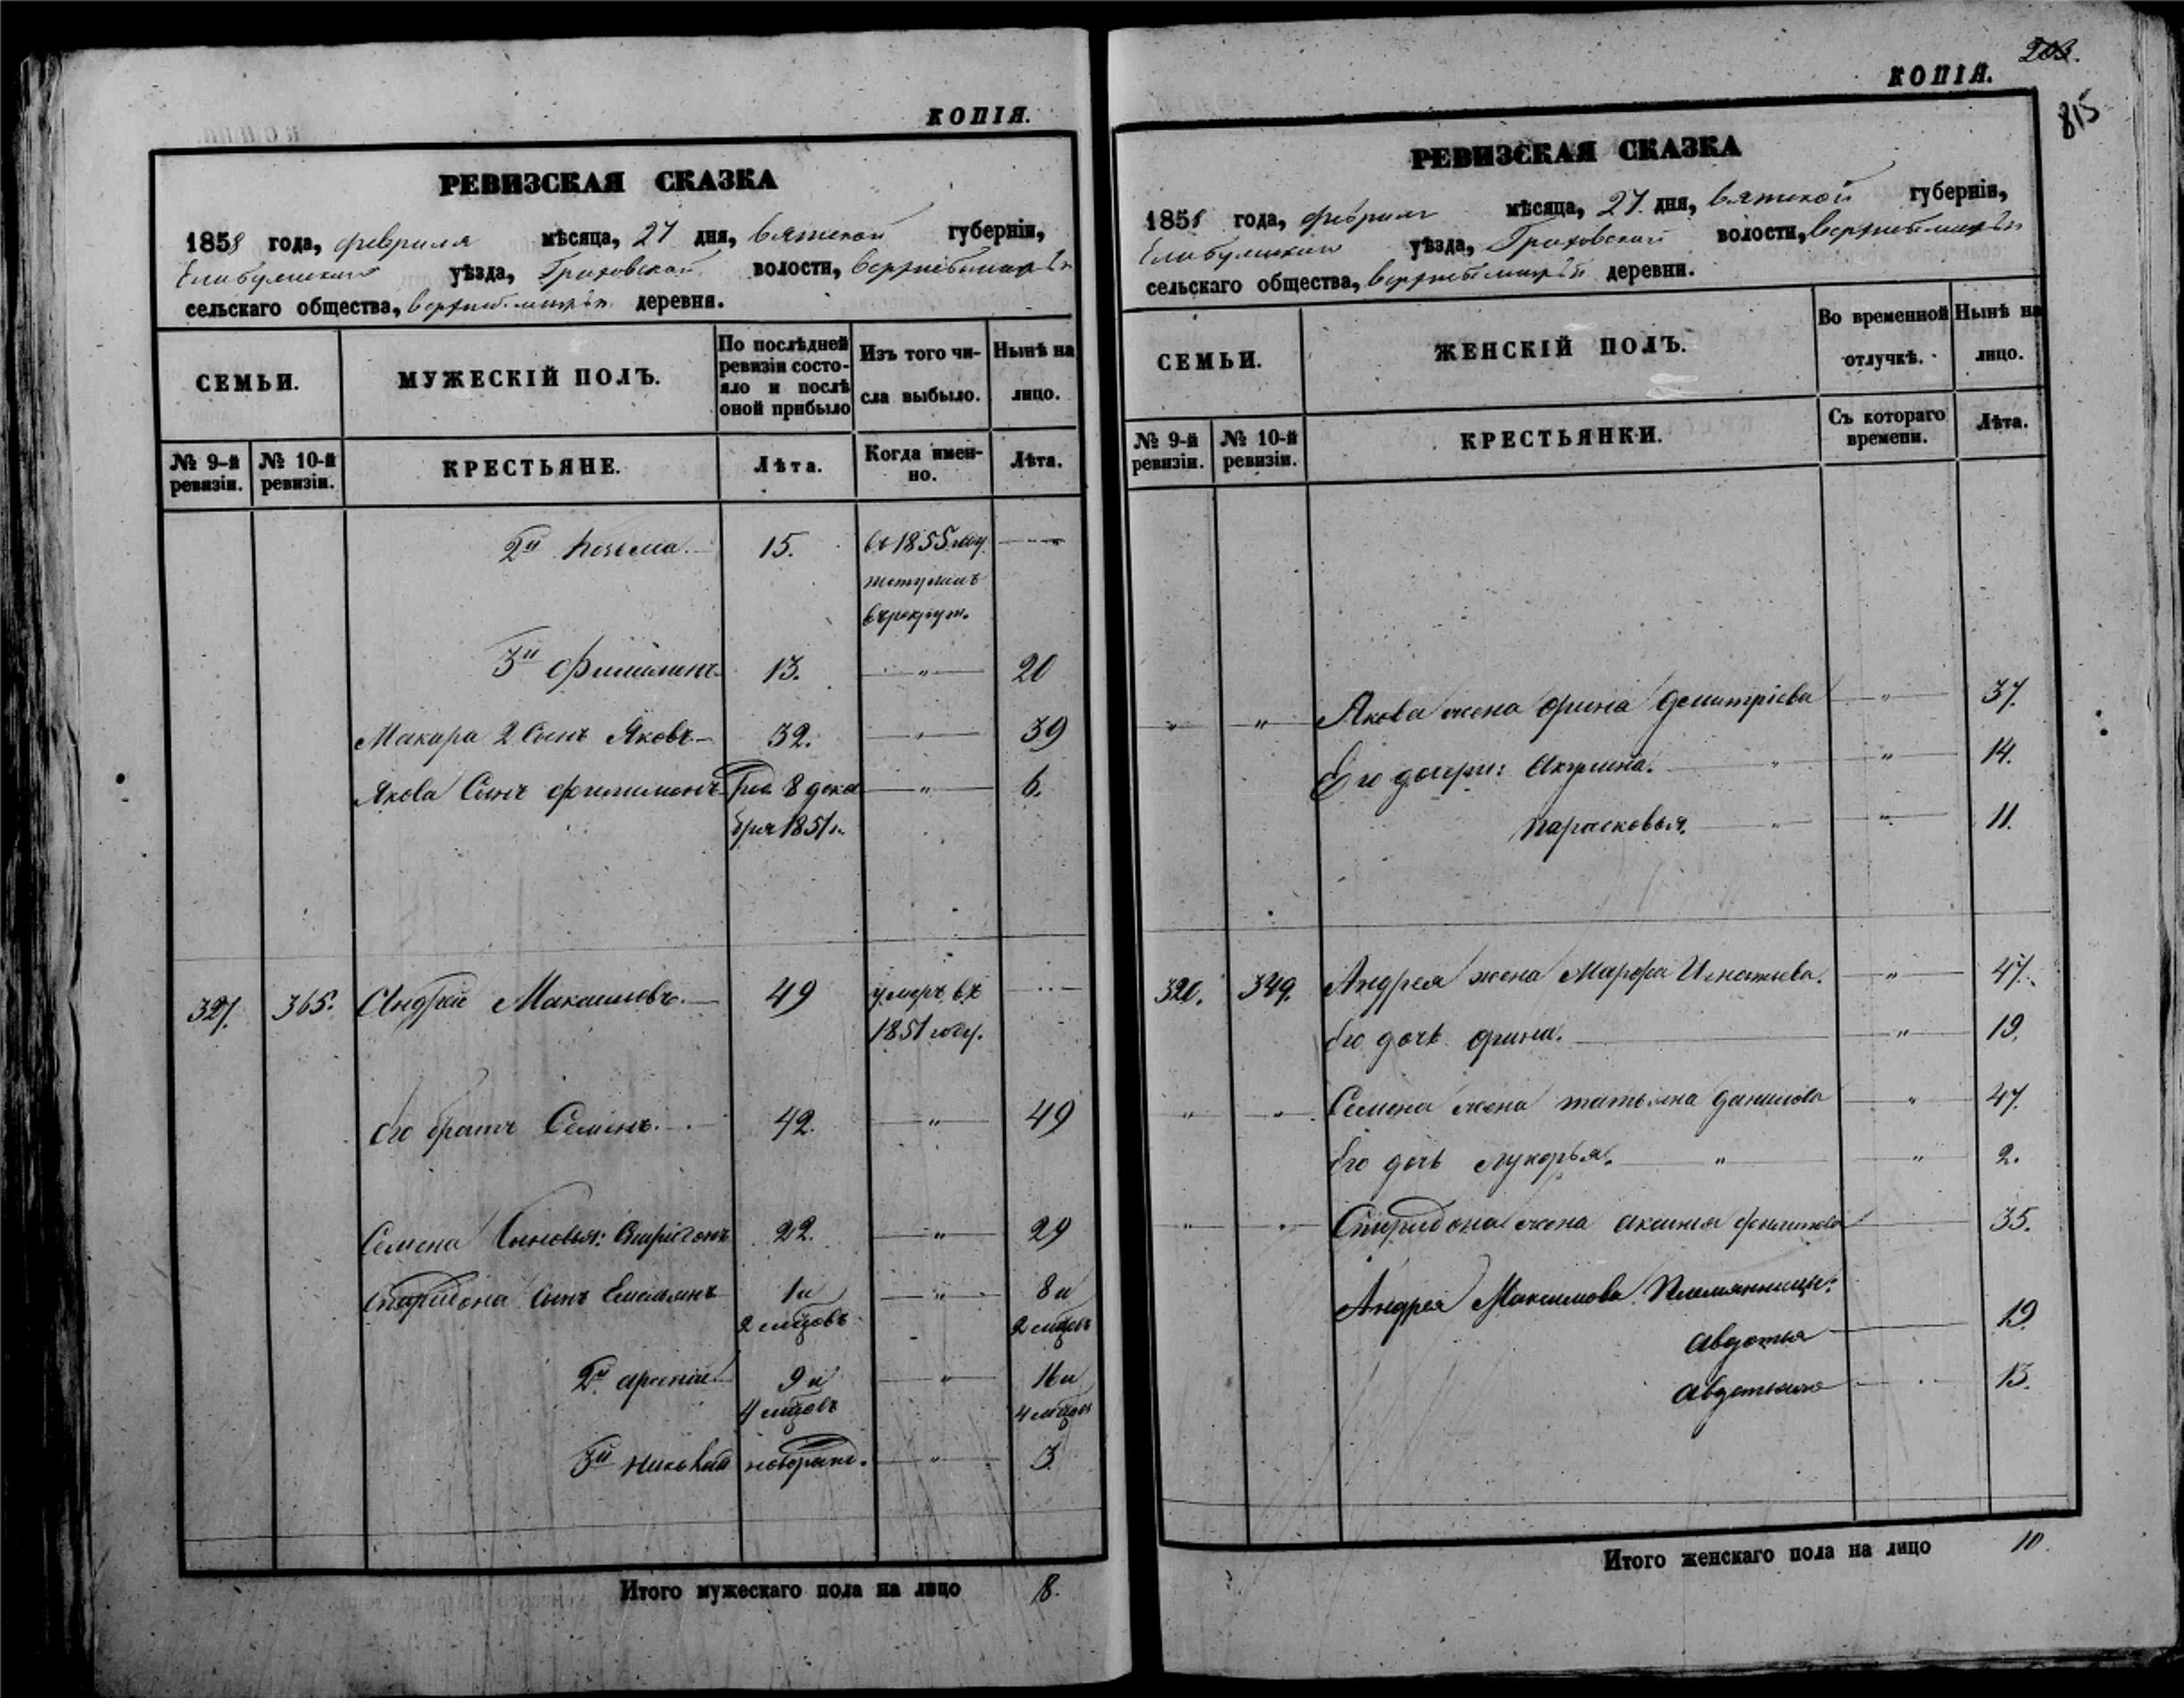 КОПІЯ.
РЕВИЗСКАЯ СКАЗКА
1858 года, февраля мѣсяца, 27 дня, Вятской губерніи,
уѣзда, Граховской волости,
сельскаго общества, деревня.
СЕМЬИ.
МУЖЕСКІЙ ПОЛЪ.
По послѣдней
ревизіи состо-
яло и послѣ
оной прибыло
Изъ того чи-
сла выбыло.
Нынѣ на
лицо.
№ 9-й
ревизіи.
№ 10-й
ревизіи.
КРЕСТЬЯНЕ.
Лѣта.
Когда имен-
но.
Лѣта.
2й Козьма. 15. въ 1855 году
поступилъ
въ рекруты.
3й Филимонъ 13. " 20
Макара 2 Сынъ Яковъ 32. " 39
Якова Сынъ Филимонъ Род. 8 дека " 6.
бря 1851 г.
327. 365. Андрей Максимовъ. 49 умеръ въ
1851 году.
Его братъ Семенъ. 42. " 49
Семена Сыновья: Спиридонъ 22. " 29
Спиридона Сынъ Емельянъ 1 и " 8 и
2 мцовъ 2 мцовъ
2й Арсеній 9 и " 16 и
4 мцовъ 4 мцовъ
3й Николай новорожд. " 3
Итого мужескаго пола на лицо 8.
203.
КОПІЯ.
815
РЕВИЗСКАЯ СКАЗКА
1858 года, февраля мѣсяца, 27 дня, Вятской губерніи,
уѣзда, Граховской волости,
сельскаго общества, деревни.
СЕМЬИ.
ЖЕНСКІЙ ПОЛЪ.
Во временной
отлучкѣ.
Нынѣ на
лицо.
№ 9-й
ревизіи.
№ 10-й
ревизіи.
КРЕСТЬЯНКИ.
Съ котораго
времени.
Лѣта.
" " Якова жена Орина Демитріева " 37.
Его дочери: Акулина. " " 14.
Парасковья. " " 11.
320. 349. Андрея жена Марфа Игнатьева. " 47.
Его дочь Орина. " 19.
" " Семена жена Татьяна Данилова " 47.
Его дочь Лукерья. " " 2.
" " Спиридона жена Аксинья 35.
Андрея Максимова Племянницы:
Авдотья 19.
13.
Итого женскаго пола на лицо 10.